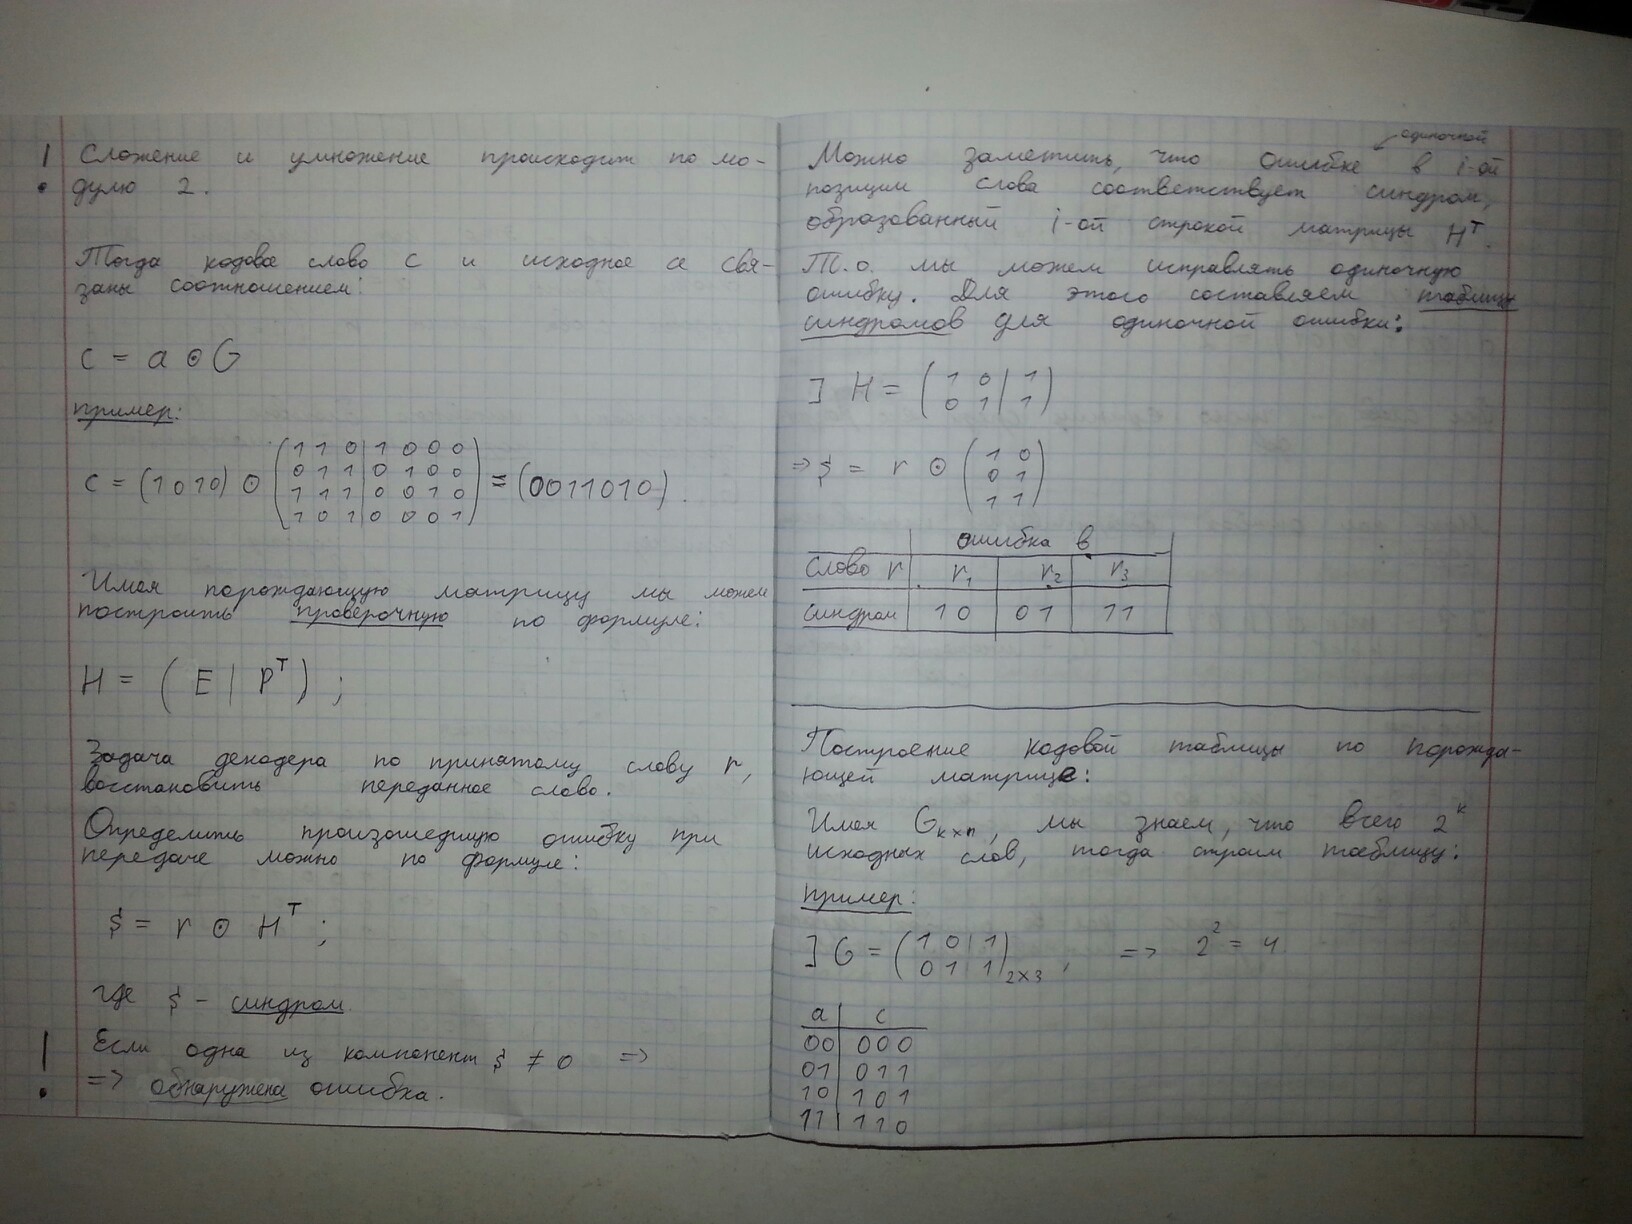 ! Сложение и умножение происходит по мо-
дулю 2.
Тогда кодовое слово c и исходное a свя-
заны соотношением:
c = a ⊙ G
пример:
c = (1010) ⊙ (1 1 0 | 1 0 0 0
0 1 1 | 0 1 0 0
1 1 1 | 0 0 1 0
1 0 1 | 0 0 0 1) = (0011010).
Имея порождающую матрицу мы можем
построить проверочную по формуле:
H = ( E | P^T ) ;
Задача декодера по принятому слову r,
восстановить переданное слово.
Определить произошедшую ошибку при
передаче можно по формуле:
S = r ⊙ H^T ;
где S - синдром
! Если одна из компонент S ≠ 0 =>
=> обнаружена ошибка.
одиночной
Можно заметить, что ошибке в i-ой
позиции слова соответствует синдром,
образованный i-ой строкой матрицы H^T.
Т.о. мы можем исправлять одиночную
ошибку. Для этого составляем таблицу
синдромов для одиночной ошибки:
] H = (1 0 | 1
0 1 | 1)
=> S = r ⊙ (1 0
0 1
1 1)
ошибка в
слово r | r1 | r2 | r3
синдром | 10 | 01 | 11
Построение кодовой таблицы по порожда-
ющей матрице:
Имея G_{k×n}, мы знаем, что всего 2^k
исходных слов, тогда строим таблицу:
пример:
] G = (1 0 | 1
0 1 | 1)_{2×3}, => 2^2 = 4
a | c
00 | 000
01 | 011
10 | 101
11 | 110